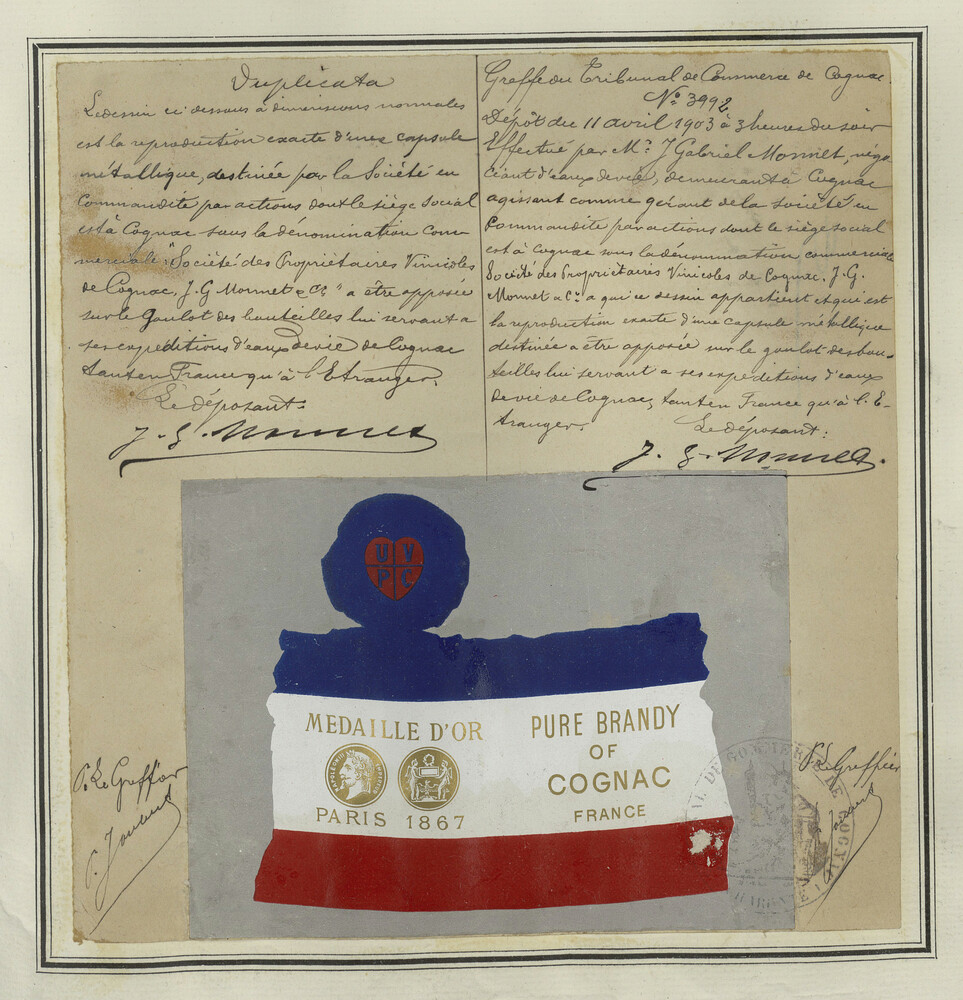 Duplicata
Le dessin ci dessous a dimensions normales
est la reproduction exacte d'une capsule
métallique, destinée par la Société en
Commandite par actions dont le siège social
est à Cognac sous la dénomination Com-
merciale "Société des Propriétaires Vinicoles
de Cognac, J. G Monnet & Cie" a être apposée
sur le Goulot des bouteilles lui servant a
ses expeditions d'eaux de vie de Cognac
tant en France qu'à l'Etranger.
Le déposant:
J. G. Monnet
Greffe du Tribunal de Commerce de Cognac
No 3992
Dépôt du 11 avril 1903 à 3 heures du soir
Effectué par Mr J Gabriel Monnet, négo-
ciant d'eaux de vie, demeurant à Cognac
agissant comme gérant de la société en
Commandite par actions dont le siège social
est à Cognac sous la dénomination commerciale
Société des Propriétaires Vinicoles de Cognac. J. G.
Monnet & Cie a qui ce dessin appartient et qui est
la reproduction exacte d'une capsule métallique
destinée a être apposée sur le goulot des bou-
teilles lui servant a ses expeditions d'eaux
de vie de Cognac, tant en France qu'à l'E-
tranger.
Le déposant:
J. G. Monnet.
U V
P C
MEDAILLE D'OR
PARIS 1867
PURE BRANDY
OF
COGNAC
FRANCE
P. Le Greffier
P. Le Greffier